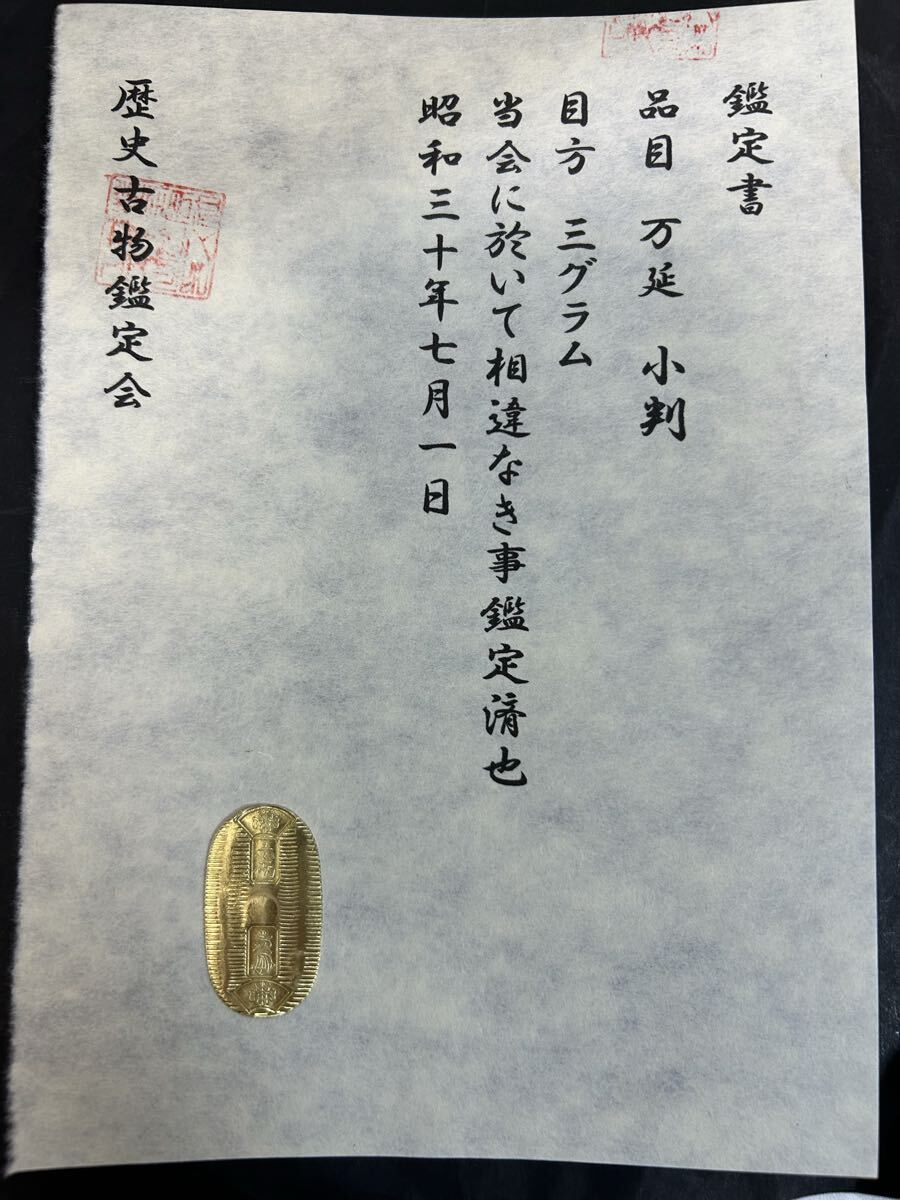 鑑定書
品目　万延　小判
目方　三グラム
当会に於いて相違なき事鑑定済也
昭和三十年七月一日
歴史古物鑑定会